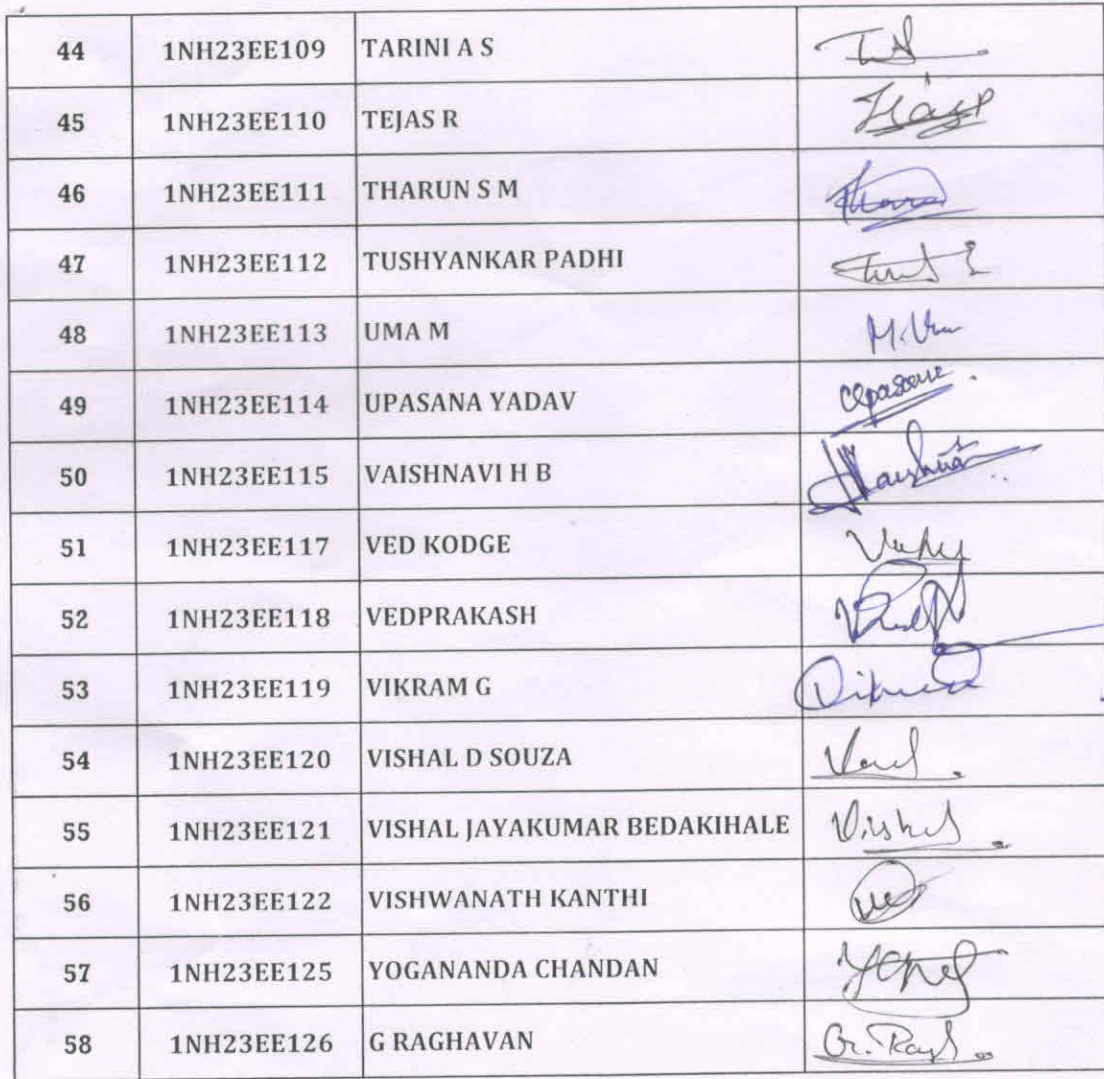 44 1NH23EE109 TARINI A S
45 1NH23EE110 TEJAS R
46 1NH23EE111 THARUN S M
47 1NH23EE112 TUSHYANKAR PADHI
48 1NH23EE113 UMA M M.Um
49 1NH23EE114 UPASANA YADAV
50 1NH23EE115 VAISHNAVI H B
51 1NH23EE117 VED KODGE
52 1NH23EE118 VEDPRAKASH
53 1NH23EE119 VIKRAM G
54 1NH23EE120 VISHAL D SOUZA
55 1NH23EE121 VISHAL JAYAKUMAR BEDAKIHALE
56 1NH23EE122 VISHWANATH KANTHI
57 1NH23EE125 YOGANANDA CHANDAN
58 1NH23EE126 G RAGHAVAN